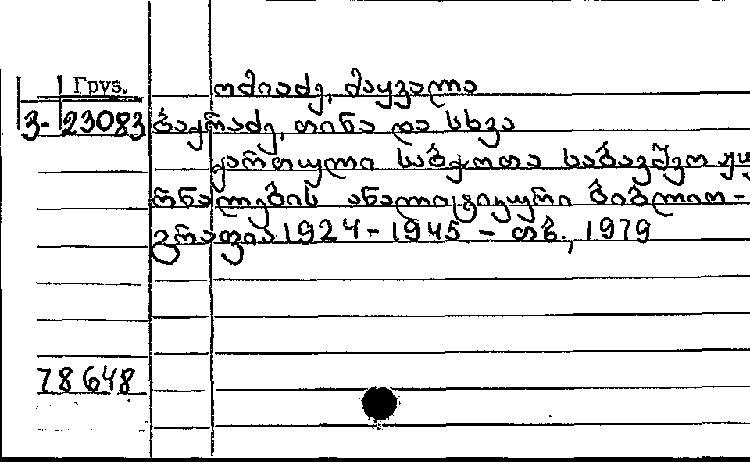 ომიაძე, მაყვალა
Груз.
3- 23083 ბაქრაძე, თინა და სხვა
ქართული საბჭოთა საბავშვო ჟუ
რნალების ანალიტიკური ბიბლიო-
გრაფია 1924-1945 - თბ., 1979
78648